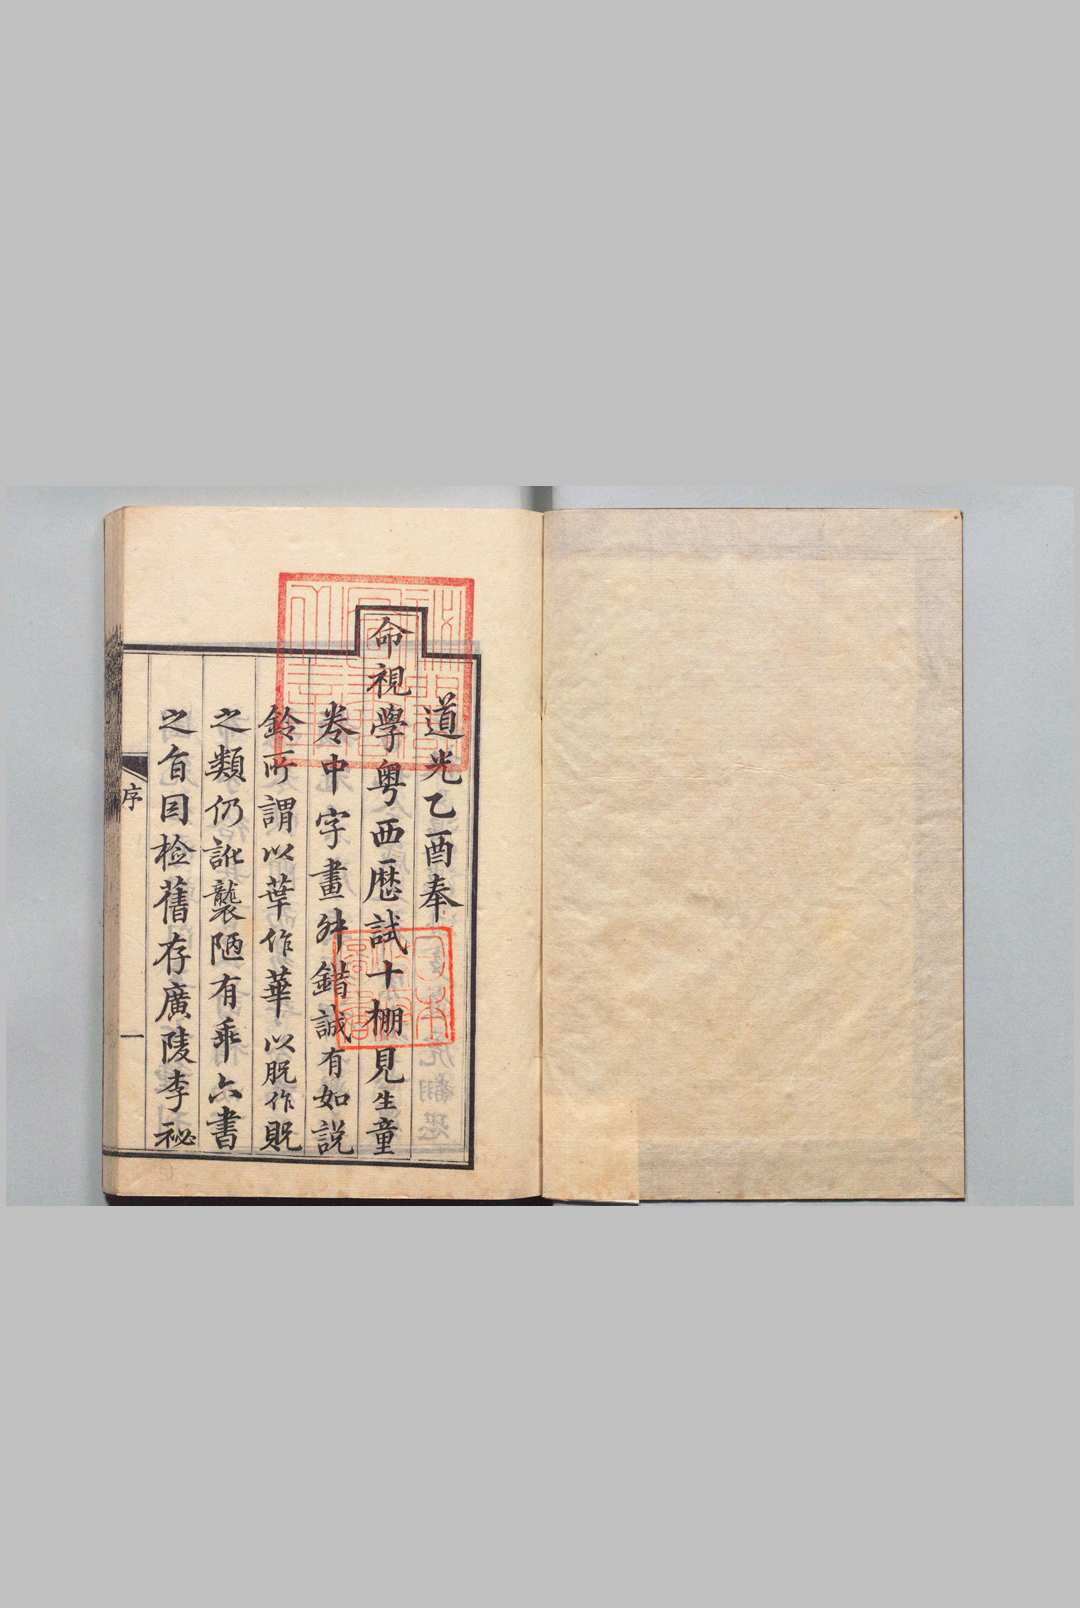 道光乙酉奉
命視學粵西歷試十棚見生童
卷中字畫舛錯誠有如說
鈴所謂以葉作華以脫作貺
之類仍訛襲陋有乖六書
之旨因檢舊存廣陵李祕
序
一